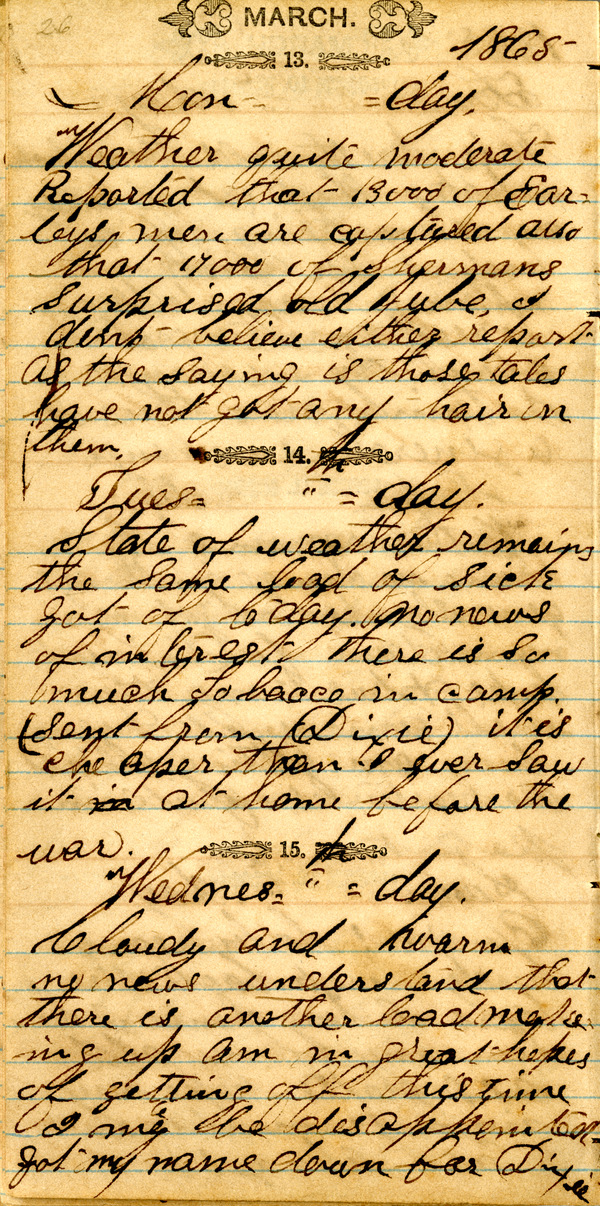 26
MARCH.
1865
13.
Mon- = day.
Weather quite moderate
Reported that 13000 of Ear=
leys men are captured also
that 17000 of Shermans
surprised old Jube, I
dont believe either report
As the saying is those tales
have not got any hair in
them.
14. th
Tues= " = day.
State of weather remains
the same load of sick
got of to day. No news
of interest there is so
much Tobacco in camp.
(sent from (Dixie) it is
cheaper than I ever saw
it in at home before the
war).
15. th
Wednes= " = day.
Cloudy and warm
no news understand that
there is another load make=
ing up am in great hopes
of getting off this time
I may be disappointed
got my name down for Dixie